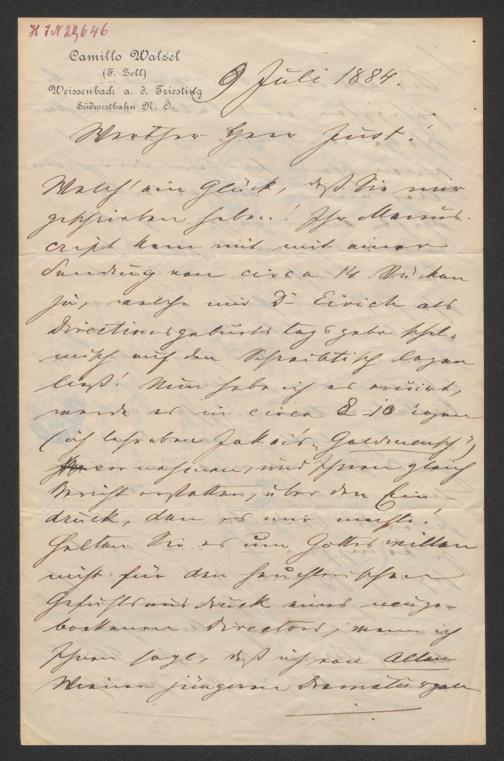 H I N 29646
Camillo Walzel
(F. Zell)
Weissenbach a. d. Triesting
Südwestbahn N. Ö.
9 Juli 1884.
Werther Herr Just!
Welch' ein Glück, daß Sie mir
geschrieben haben! Ihr Manus-
cript kam mit mit einer
Sendung von circa 14 Stücken
zu, welche mir Dr Eirich als
Directionsgeburtstagsgabe schel-
misch auf den Schreibtisch legen
ließ! Nun habe ich es,
werde es in circa 8 10 Tagen
(ich lese eben Jokai's „Goldmensch")
vornehmen, und Ihnen gleich
Bericht erstatten, über den Ein-
druck, den es mir macht!
Halten Sie es um Gottes willen
nicht für den heuchlerischen
Gefühlsausdruck eines neuge-
backenen Directors, wenn ich
Ihnen sage, daß ich von allen
Wiener jüngeren Dramatikern